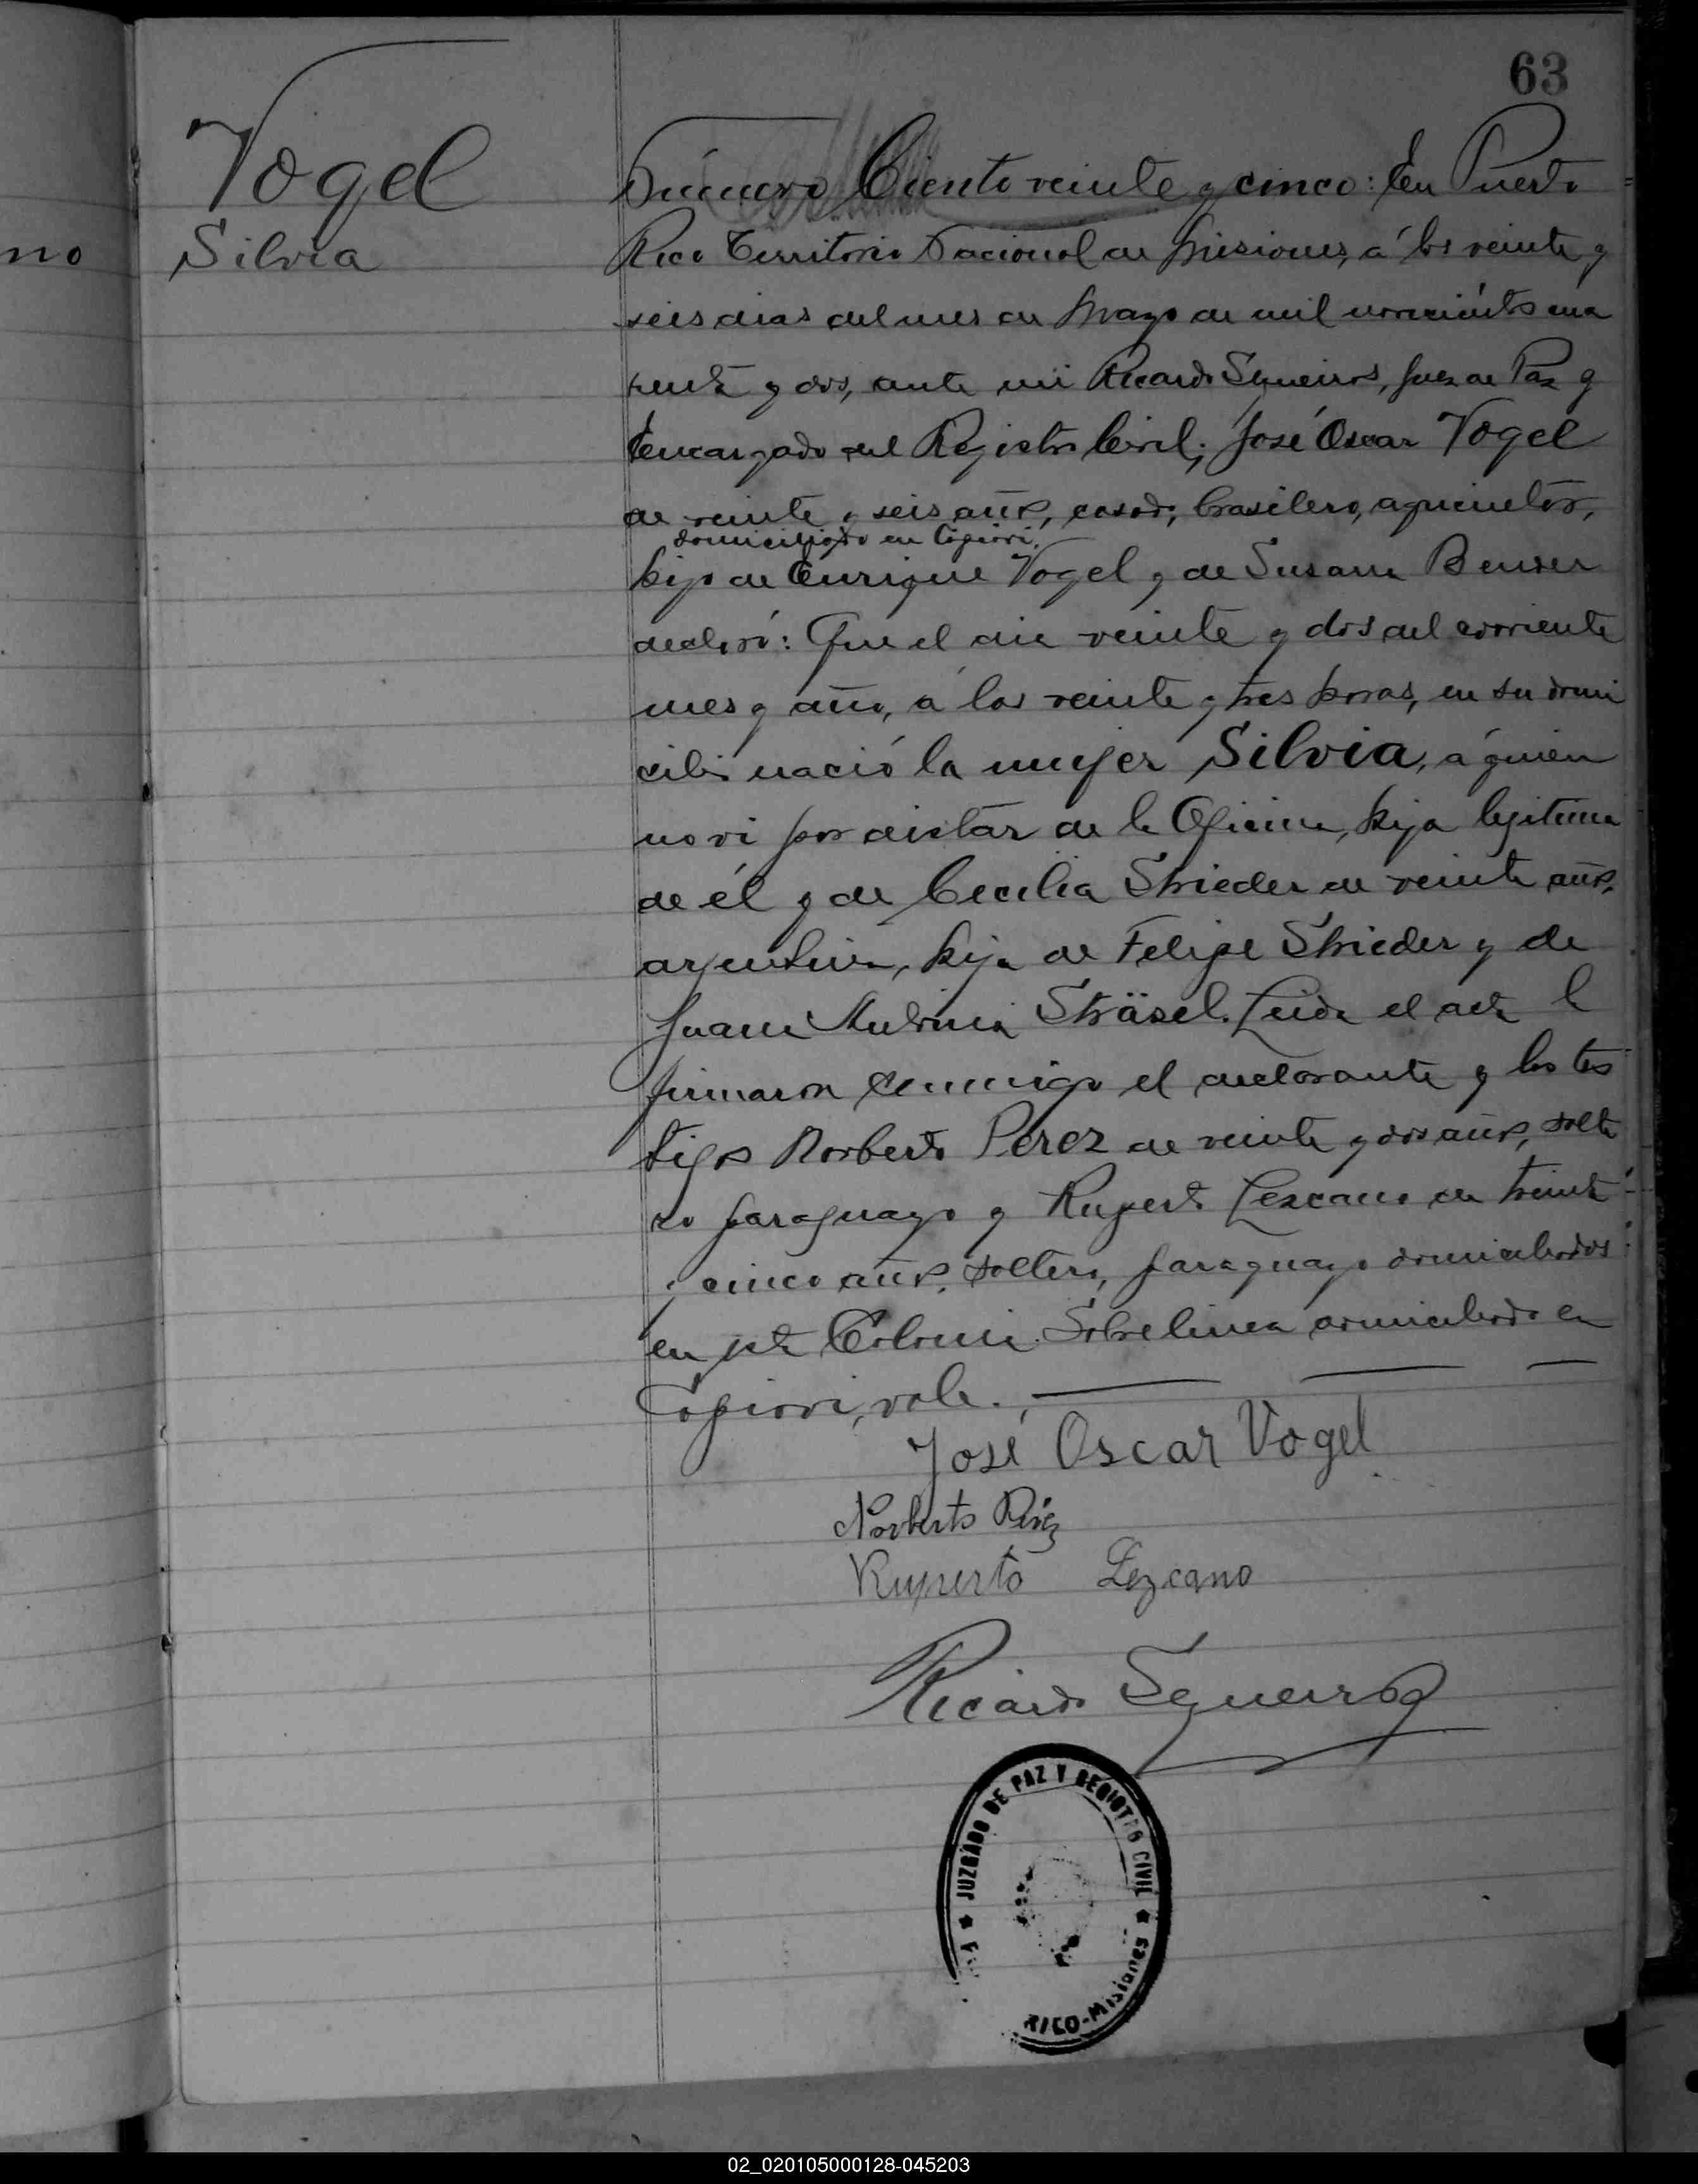 63
no
Vogel
Silvia
Número Ciento veinte y cinco: En Puerto
Rico Territorio Nacional de Misiones, á los veinte y
seis dias del mes de Mayo de mil novecientos cua
renta y dos, ante mi Ricardo Sequeiros, Juez de Paz y
Encargado del Registro Civil; José Oscar Vogel
de veinte y seis años, casado, brasilero, agricultor,
domiciliado en Capiovi,
hijo de Enrique Vogel y de Susana
declaró: Que el dia veinte y dos del corriente
mes y año, á las veinte y tres horas, en su domi
cilio nació la mujer Silvia, á quien
no vi por distar de la Oficina, hija legitima
de él y de Cecilia Strieder de veinte años,
argentina, hija de Felipe Strieder y de
Juana Sträsel. Leida el acta la
firmaron conmigo el declarante y los tes
tigos Norberto Perez de veinte y dos años, solte
ro paraguayo y Ruperto Lezcano de treinta
y cinco años, soltero, paraguayo domiciliados
en esta Colonia. Sobrelinea domiciliado en
Capiovi, vale.
José Oscar Vogel
Norberto Pérez
Ruperto Lezcano
Ricardo Sequeiros
JUZGADO DE PAZ Y REGISTRO CIVIL
RICO-Misiones
02_020105000128-045203